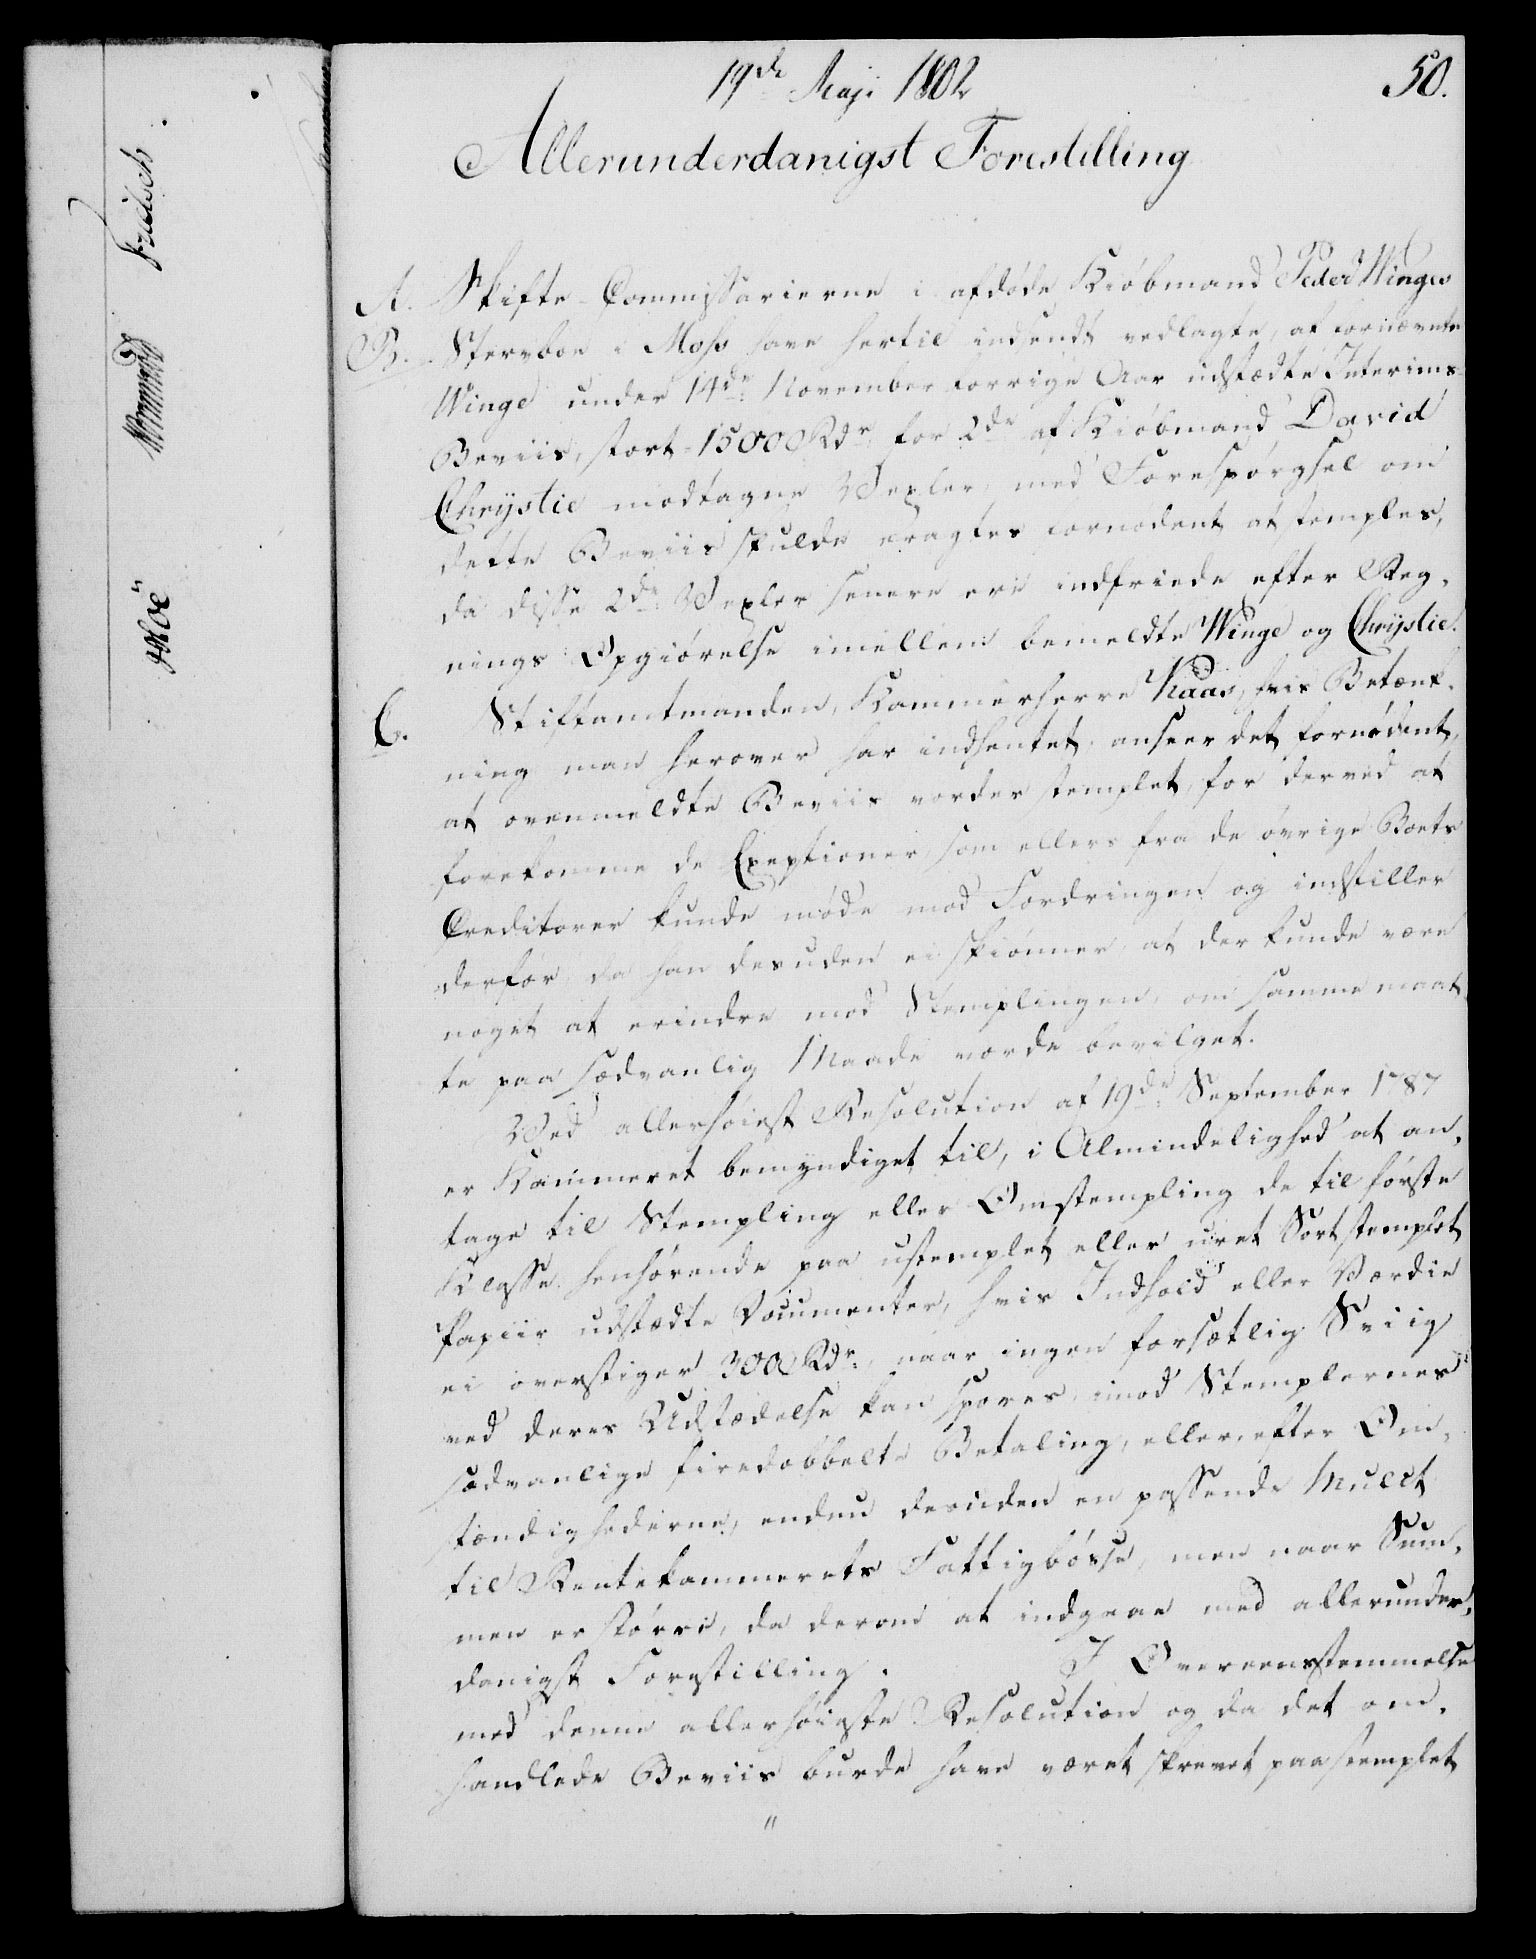 19de Maji 1802
50.
Allerunderdanigst Forestilling
A. Skifte-Commissarierne i afdøde Kiøbmand Peder Winges
B. Stervboe i Moss have hertil indsendt vedlagte, af fornævnte
Winge under 14de November forrige Aar udstædte Interims-
Beviis, stort 1500 Rdr for 2de af Kiøbmand David
Chrÿstie modtagne Vexler, med Forespørgsel om
dette Beviis skulde eragtes fornødent at stemples,
da disse 2de Vexler senere ere indfriede efter Reg-
nings Opgiørelse imellem bemeldte Winge og Chrÿstie.
C. Stiftamtmanden, Kammerherre Kaas, hvis Betænk-
ning man herover har indhentet, anseer det fornødent,
at ovenmeldte Beviis vorder stemplet, for derved at
forekomme de Exeptioner, som ellers fra de øvrige Boets
Creditorer kunde møde mod Fordringen og indstiller
derfor, da han desuden ei skiønner, at der kunde være
noget at erindre mod Stemplingen, om samme maat-
te paa sædvanlig Maade vorde bevilget.
Ved allerhøiest Resolution af 19de September 1787
er Kammeret bemyndiget til, i Almindelighed at an-
tage til Stempling eller Omstempling de til første
Klasse henhørende paa ustemplet eller uret Sort stemplet
Papiir udstædte Documenter, hvis Indhold eller Værdie
ei overstiger 300 Rdr, naar ingen forsætlig Sviig
ved deres Udstædelse kan spores, imod Stemplernes
sædvanlige firedobbelte Betaling, eller, efter Om-
stændighederne, endnu desuden en passende Mulct
til Rentekammerets Fattigbøsse, men naar Sum-
men er større, da derom at indgaae med allerunder-
danigst Forestilling. I Overeensstemmelse
med denne allerhøieste Resolution og da det om-
handlede Beviis burde have været skrevet paa stemplet